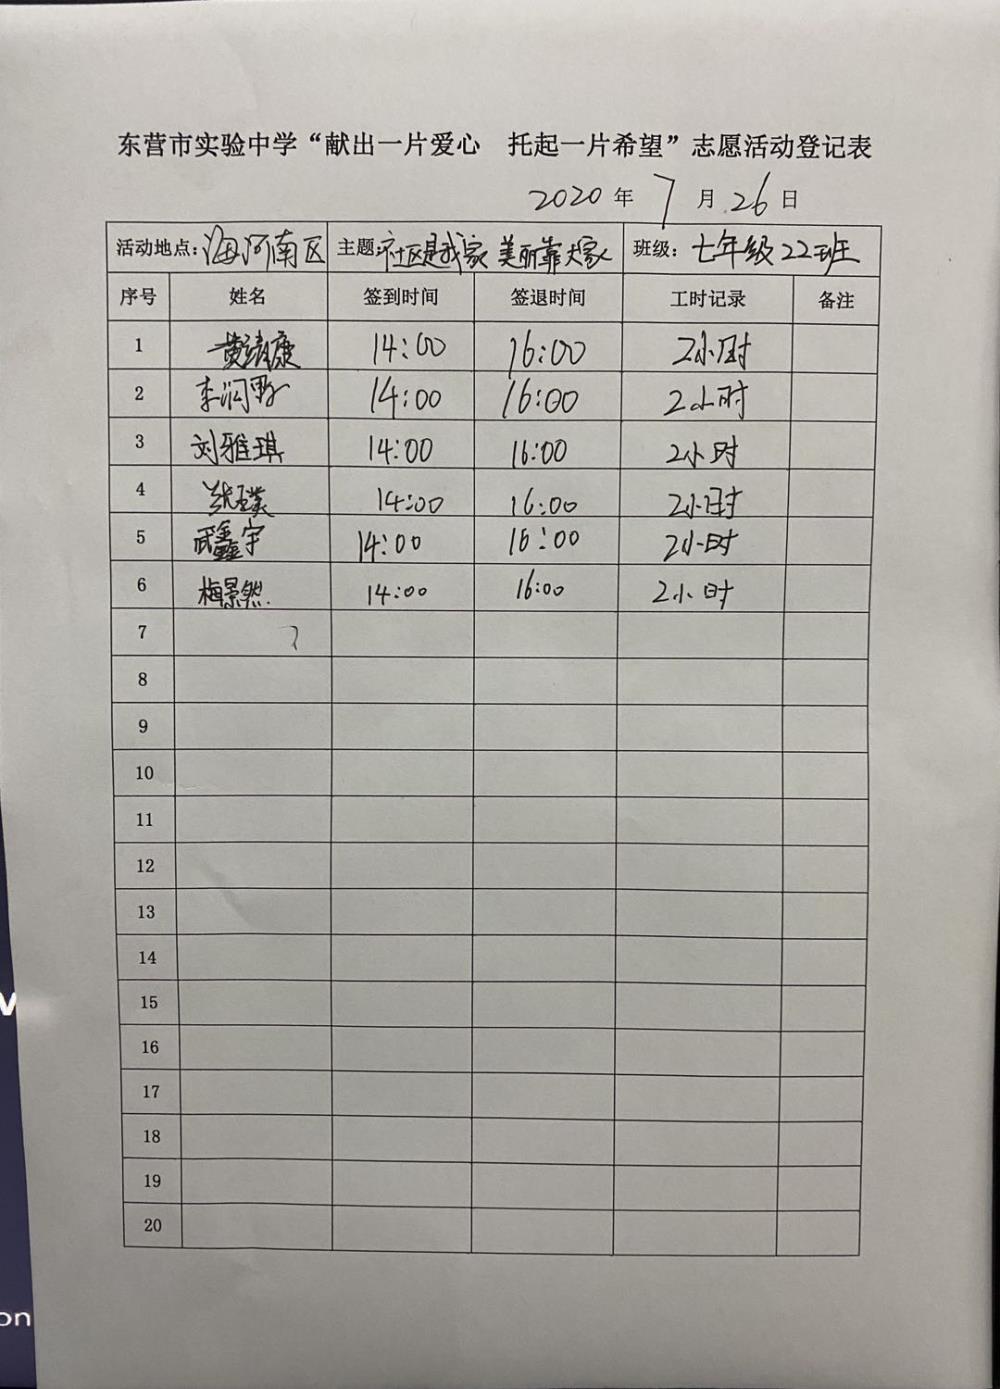 东营市实验中学“献出一片爱心 托起一片希望”志愿活动登记表
2020年7月26日
活动地点:海河南区 主题:社区是我家 美丽靠大家 班级:七年级22班
序号 姓名 签到时间 签退时间 工时记录 备注
1 黄靖康 14:00 16:00 2小时
2 李润野 14:00 16:00 2小时
3 刘雅琪 14:00 16:00 2小时
4 14:00 16:00 2小时
5 武鑫宇 14:00 16:00 2小时
6 梅景然. 14:00 16:00 2小时
7
8
9
10
11
12
13
14
15
16
17
18
19
20
on